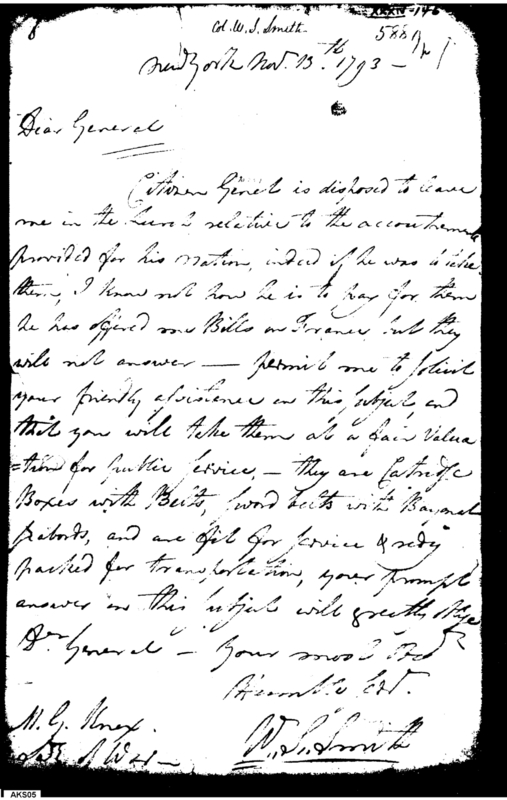 XXXIV-146
8
Col. W. S. Smith
588
New York Nov. 13.th 1793 —
Dear General
Citizen Genet is disposed to leave
me in the lurch relative to the accoutrements
provided for his nation, indeed if he was to take
them, I know not how he is to pay for them
he has offered me Bills on France but they
will not answer — permit me to solicit
your friendly assistance on this subject, and
that you will take them at a fair Valua
=tion for public Service, — they are Catridge
Boxes with Belts, sword belts with Bayonet
scabords, and are fit for service & redy
packed for transportation, your prompt
answer on this subject will greatly oblige
Dr. General — Your most Obd.
Humble Set.
M. G. Knox.
Sec. of War —
W. S. Smith
AKS05